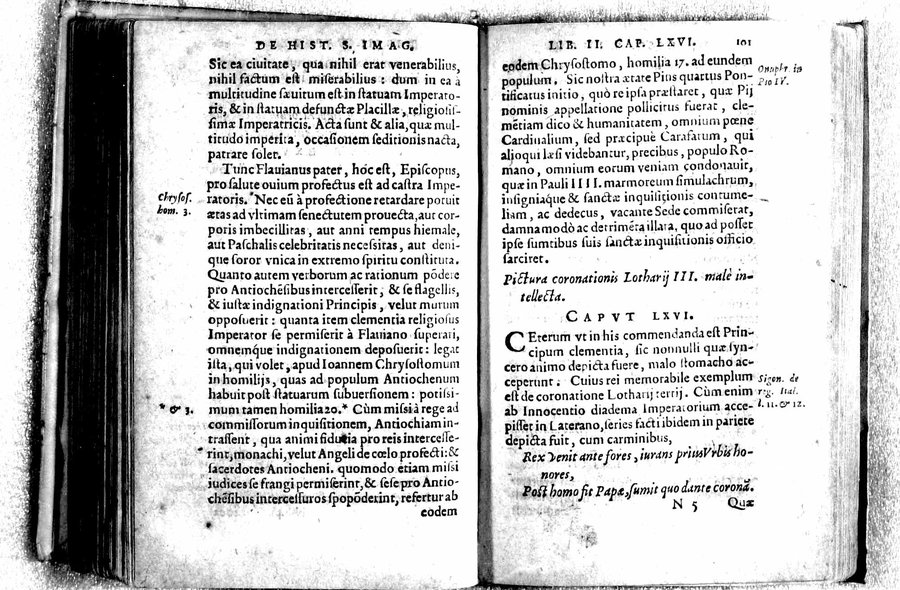 DE HIST. S. IMAG.
Sic ea ciuitate, qua nihil erat venerabilius,
nihil factum est miserabilius: dum in ea à
multitudine sæuitum est in statuam Imperato-
ris, & in statuam defunctæ Placillæ, religiosis-
simæ Imperatricis. Acta sunt & alia, quæ mul-
titudo imperita, occasionem seditionis nacta,
patrare solet.
Tunc Flauianus pater, hoc est, Episcopus,
pro salute ouium profectus est ad castra Impe-
Chrysos.
hom. 3.
ratoris. *Nec eū à profectione retardare potuit
ætas ad vltimam senectutem prouecta, aut cor-
poris imbecillitas, aut anni tempus hiemale,
aut Paschalis celebritatis necessitas, aut deni-
que soror vnica in extremo spiritu constituta.
Quanto autem verborum ac rationum pōdere
pro Antiochēsibus intercesserit, & se flagellis,
& iustæ indignationi Principis, velut murum
opposuerit: quanta item clementia religiosus
Imperator se permiserit à Flauiano superari,
omnemque indignationem deposuerit: legat
ista, qui volet, apud Ioannem Chrysostomum
in homilijs, quas ad populum Antiochenum
habuit post statuarum subuersionem: potissi-
* & 3.
mum tamen homilia 20.* Cùm missi à rege ad
commissorum inquisitionem, Antiochiam in-
trassent, qua animi fiducia pro reis intercesse-
rint, monachi, velut Angeli de cœlo profecti: &
sacerdotes Antiocheni. quomodo etiam missi
iudices se frangi permiserint, & sese pro Antio-
chēsibus intercessuros spopōderint, refertur ab
eodem
LIB. II. CAP. LXVI. 101
eodem Chrysostomo, homilia 17. ad eundem
Onuphr. in
Pio IV.
populum. Sic nostra ætate Pius quartus Pon-
tificatus initio, quò re ipsa præstaret, quæ Pij
nominis appellatione pollicitus fuerat, cle-
mētiam dico & humanitatem, omnium pœne
Cardinalium, sed præcipuè Carafarum, qui
alioqui læsi videbantur, precibus, populo Ro-
mano, omnium eorum veniam condonauit,
quæ in Pauli IIII. marmoreum simulachrum,
insigniaque & sanctæ inquisitionis contume-
liam, ac dedecus, vacante Sede commiserat,
damna modò ac detrimēta illata, quo ad posset
ipse sumtibus suis sanctæ inquisitionis officio
sarciret.
Pictura coronationis Lotharij III. malè in-
tellecta.
CAPVT LXVI.
CEterum vt in his commendanda est Prin-
cipum clementia, sic nonnulli quæ syn-
cero animo depicta fuere, malo stomacho ac-
ceperunt. Cuius rei memorabile exemplum
Sigon. de
reg. Ital.
l. 11. & 12.
est de coronatione Lotharij tertij. Cùm enim
ab Innocentio diadema Imperatorium acce-
pisset in Laterano, series facti ibidem in pariete
depicta fuit, cum carminibus,
Rex venit ante fores, iurans prius Vrbis ho-
nores,
Post homo fit Papæ, sumit quo dante coronā.
N 5 Quæ